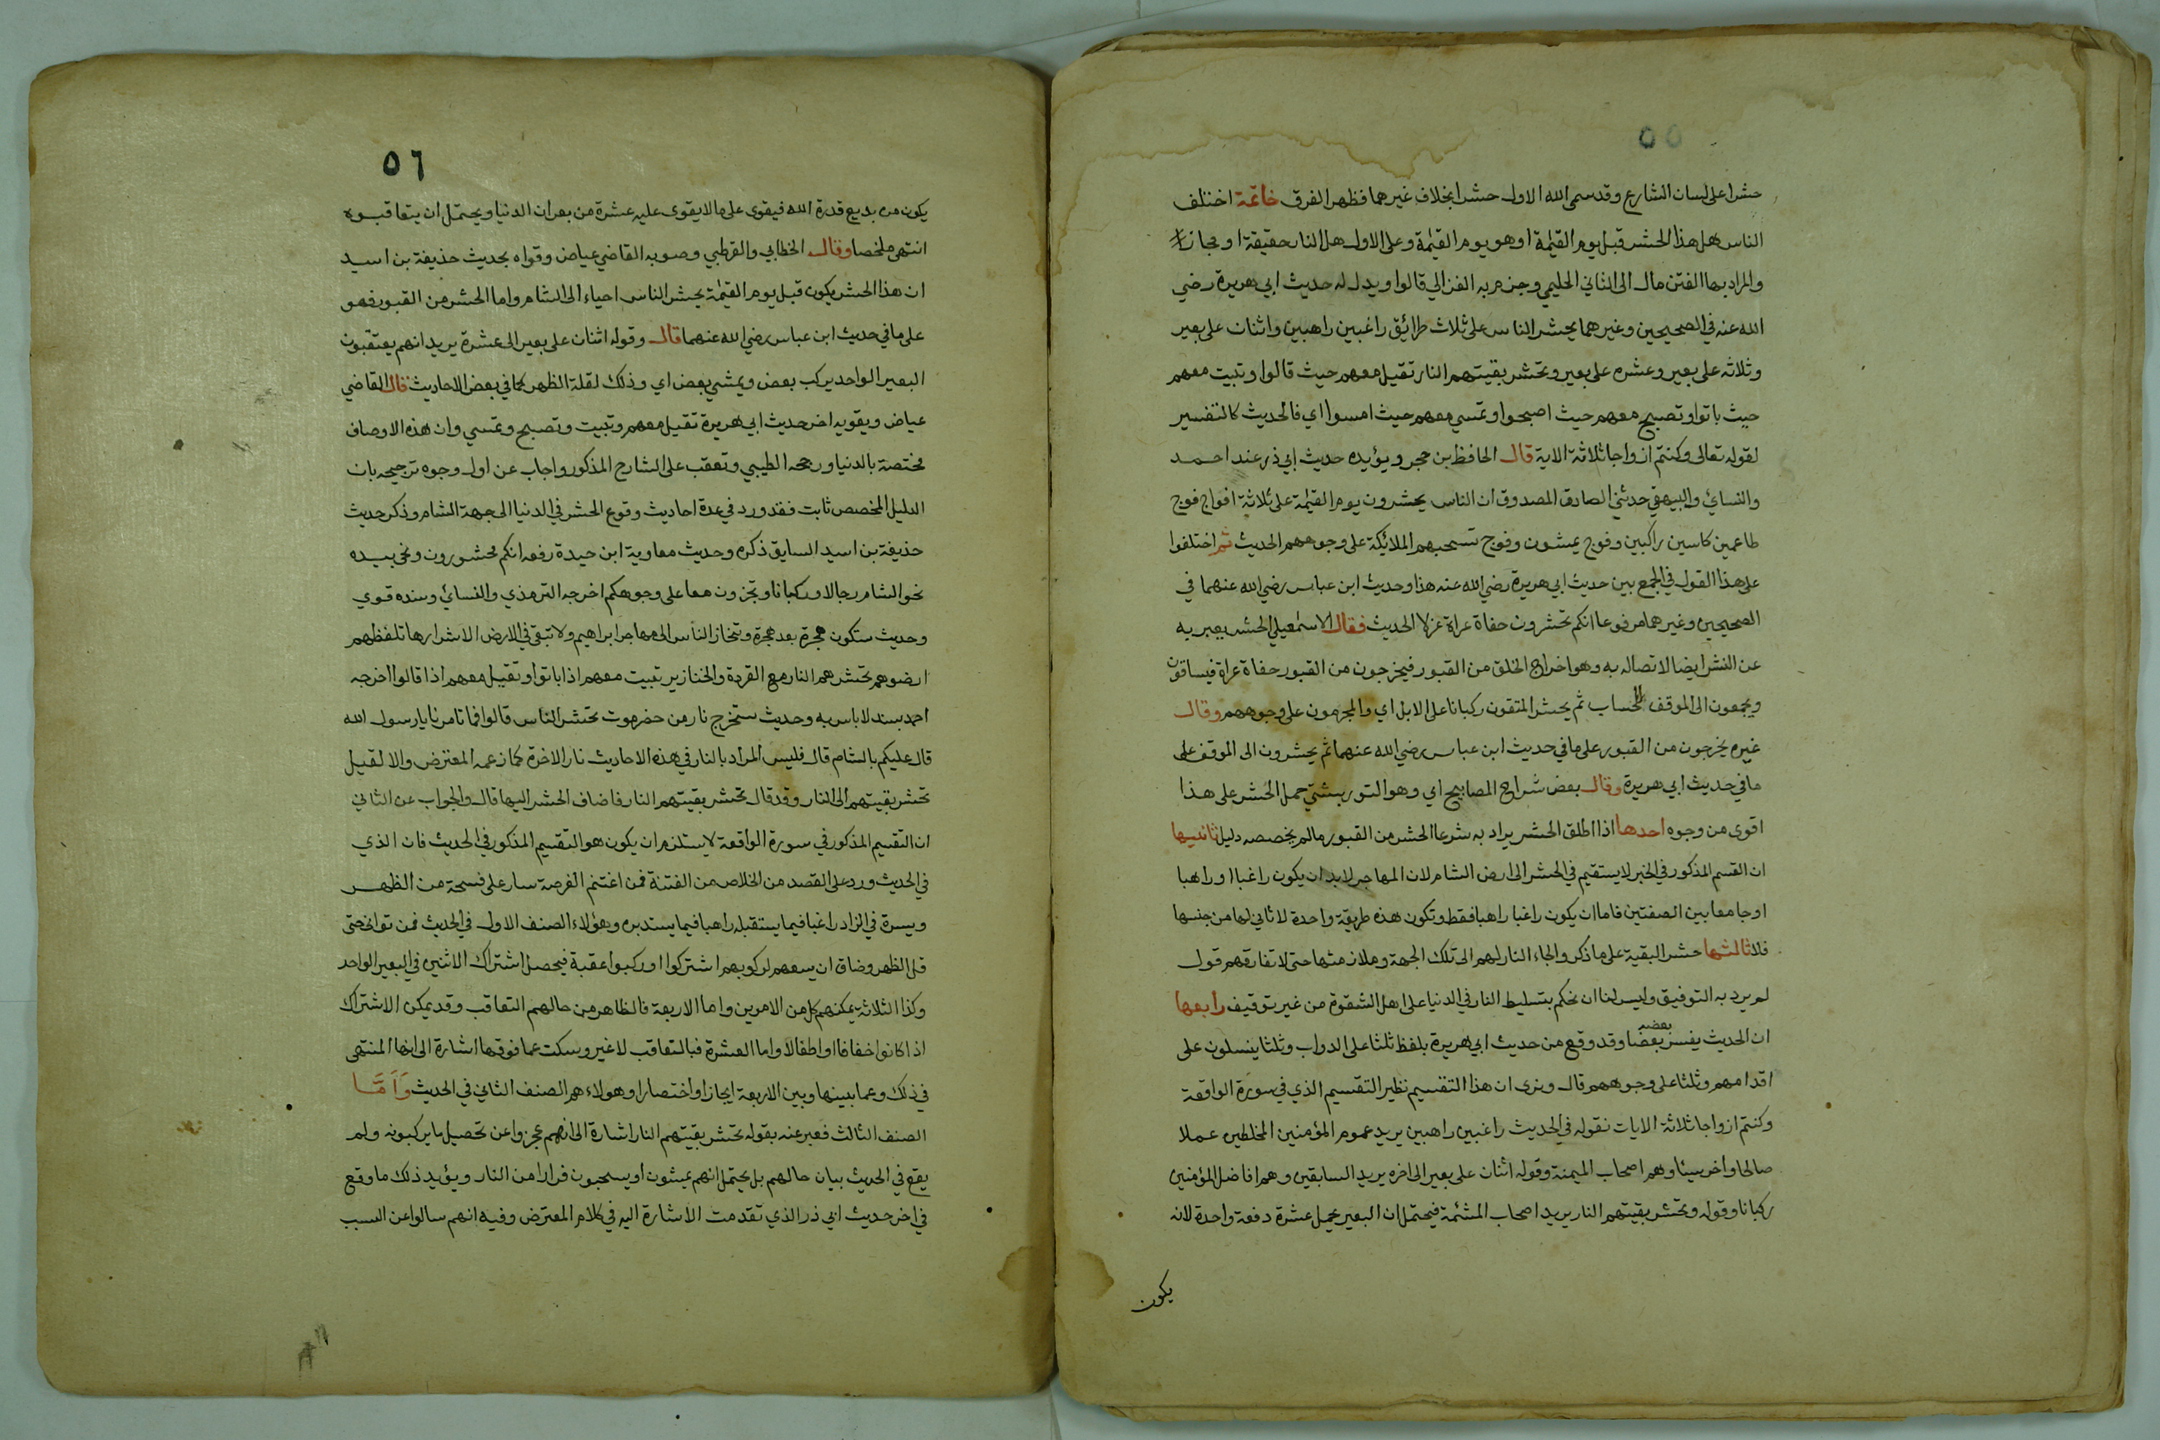 ٥٥
حشرا على لسان الشارع وقد سمى الله الاول حشرا بخلاف غيرهما فظهر الفرق خاتمة اختلف
الناس هل هذا الحشر قبل يوم القيمة او هو يوم القيمة وعلى الاول هل النار حقيقة او مجازا
والمراد بها الفتن مال الى الثاني الحليمي وجزم به الغزالي قالوا ويدل له حديث ابي هريرة رضي
الله عنه في الصحيحين وغيرهما يحشر الناس على ثلاث طرائق راغبين راهبين واثنان على بعير
وثلاثه على بعير وعشره على بعير وتحشر بقيتهم النار تقيل معهم حيث قالوا وتبيت معهم
حيث باتوا وتصبح معهم حيث اصبحوا وتمسي معهم حيث امسوا اي فالحديث كالتفسير
لقوله تعالى وكنتم ازواجا ثلاثة الاية قال الحافظ بن حجر ويؤيده حديث ابي ذر عند احمد
والنسائي والبيهقي حدثني الصادق المصدوق ان الناس يحشرون يوم القيمة على ثلاثة افواج فوج
طاعمين كاسين راكبين وفوج يمشون وفوج تسحبهم الملائكة على وجوههم الحديث ثم اختلفوا
على هذا القول في الجمع بين حديث ابي هريرة رضي الله عنه هذا وحديث ابن عباس رضي الله عنهما في
الصحيحين وغيرهما مرفوعا انكم تحشرون حفاة عراة غزلا الحديث فقال الاسمعيلي الحشر يعبر به
عن النشر ايضا لاتصاله به وهو اخراج الخلق من القبور فيخرجون من القبور حفاة عراة فيساقون
ويجمعون الى الموقف للحساب ثم يحشر المتقون ركبانا على الابل اي والمجرمون على وجوههم وقال
غيره يخرجون من القبور على ما في حديث ابن عباس رضي الله عنهما ثم يحشرون الى الموقف على
ما في حديث ابي هريرة وقال بعض شراح المصابيح اي وهو التوربشتي حمل الحشر على هذا
اقوى من وجوه احدها اذا اطلق الحشر يراد به شرعا الحشر من القبور ما لم يخصصه دليل ثانيها
ان القسم المذكور في الخبر لا يستقيم في الحشر الى ارض الشام لان المهاجر لابد ان يكون راغبا او راهبا
او جامعا بين الصفتين فاما ان يكون راغبا راهبا فقط وتكون هذه طريقة واحدة لا ثاني لها من جنسها
فلا ثالثها حشر البقية على ما ذكر والجاء النار لهم الى تلك الجهة وملازمتها حتى لا تفارقهم قول
لم يرد به التوفيق وليس لنا ان نحكم بتسليط النار في الدنيا على اهل الشقوة من غير توقيف رابعها
ان الحديث يفسر بعضه بعضا وقد وقع من حديث ابي هريرة بلفظ ثلثا على الدواب وثلثا ينسلون على
اقدامهم وثلثا على وجوههم قال ونرى ان هذا التقسيم نظير التقسيم الذي في سورة الواقعة
وكنتم ازواجا ثلاثة الايات فقوله في الحديث راغبين راهبين يريد عموم المؤمنين المخلطين عملا
صالحا واخر سيئا وهم اصحاب الميمنة وقوله اثنان على بعير الى اخره يريد السابقين وهم افاضل المؤمنين
ركبانا وقوله وتحشر بقيتهم النار يريد اصحاب المشئمة فيحتمل ان البعير يحمل عشرة دفعة واحدة لانه
يكون
٥٦
يكون من بديع قدرة الله فيقوى على ما لا يقوى عليه عشرة من بعران الدنيا ويحتمل ان يتعاقبوه
انتهى ملخصا وقال الخطابي والقرطبي وصوبه القاضي عياض وقواه بحديث حذيفة بن اسيد
ان هذا الحشر يكون قبل يوم القيمة يحشر الناس احياء الى الشام واما الحشر من القبور فهو
على ما في حديث ابن عباس رضي الله عنهما قال وقوله اثنان على بعير الى عشرة يريد انهم يعتقبون
البعير الواحد يركب بعض ويمشي بعض اي وذلك لقلة الظهر كما في بعض الاحاديث قال القاضي
عياض ويقويه اخر حديث ابي هريرة تقيل معهم وتبيت وتصبح وتمسي وان هذه الاوصاف
مختصة بالدنيا ورجحه الطيبي وتعقب على الشارح المذكور واجاب عن اول وجوه ترجيحه بان
الدليل المخصص ثابت فقد ورد في عدة احاديث وقوع الحشر في الدنيا الى جهة الشام وذكر حديث
حذيفة بن اسيد السابق ذكره وحديث معاوية ابن حيدة رفعه انكم محشورون ونحى بيده
نحو الشام رجالا وركبانا وتجرون معا على وجوهكم اخرجه الترمذي والنسائي وسنده قوي
وحديث ستكون هجرة بعد هجرة وتنحاز الناس الى مهاجر ابراهيم ولا تبقى في الارض الا شرارها تلفظهم
ارضوهم تحشرهم النار مع القردة والخنازير تبيت معهم اذا باتوا وتقيل معهم اذا قالوا اخرجه
احمد بسند لا باس به وحديث ستخرج نار من حضرموت تحشر الناس قالوا فما تامرنا يا رسول الله
قال عليكم بالشام قال فليس المراد بالنار في هذه الاحاديث نار الاخرة كما زعمه المعترض والا لقيل
تحشر بقيتهم الى النار وقد قال تحشر بقيتهم النار فاضاف الحشر اليها قال والجواب عن الثاني
ان التقسيم المذكور في سورة الواقعة لا يستلزم ان يكون هو التقسيم المذكور في الحديث فان الذي
في الحديث ورد على القصد من الخلاص من الفتنة فمن اغتنم الفرصة سار على فسحة من الظهر
ويسرة في الزاد راغبا فيما يستقبله راهبا فيما يستدبره وهؤلاء الصنف الاول في الحديث فمن توانى حتى
قل الظهر وضاق ان يسعهم لركوبهم اشتركوا او ركبوا عقبة فيحصل اشتراك الاثنين في البعير الواحد
وكذا الثلاثة يمكنهم كل من الامرين واما الاربعة فالظاهر من حالهم التعاقب وقد يمكن الاشتراك
اذا كانوا خفافا او اطفالا واما العشرة فبالتعاقب لا غير وسكت عما فوقها اشارة الى انها المنتهى
في ذلك وعما بينها وبين الاربعة ايجازا واختصارا وهولاء هم الصنف الثاني في الحديث وَاَمَّا
الصنف الثالث فعبر عنه بقوله تحشر بقيتهم النار اشارة الى انهم عجزوا عن تحصيل ما يركبونه ولم
يقع في الحديث بيان حالهم بل يحتمل انهم يمشون او يسحبون فرارا من النار ويؤيد ذلك ما وقع
في اخر حديث ابي ذر الذي تقدمت الاشارة اليه في كلام المعترض وفيه انهم سالوا عن السبب